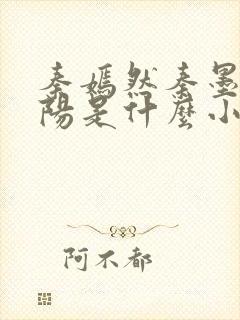 秦嫣然秦墨
陽是什麼小
阿不都